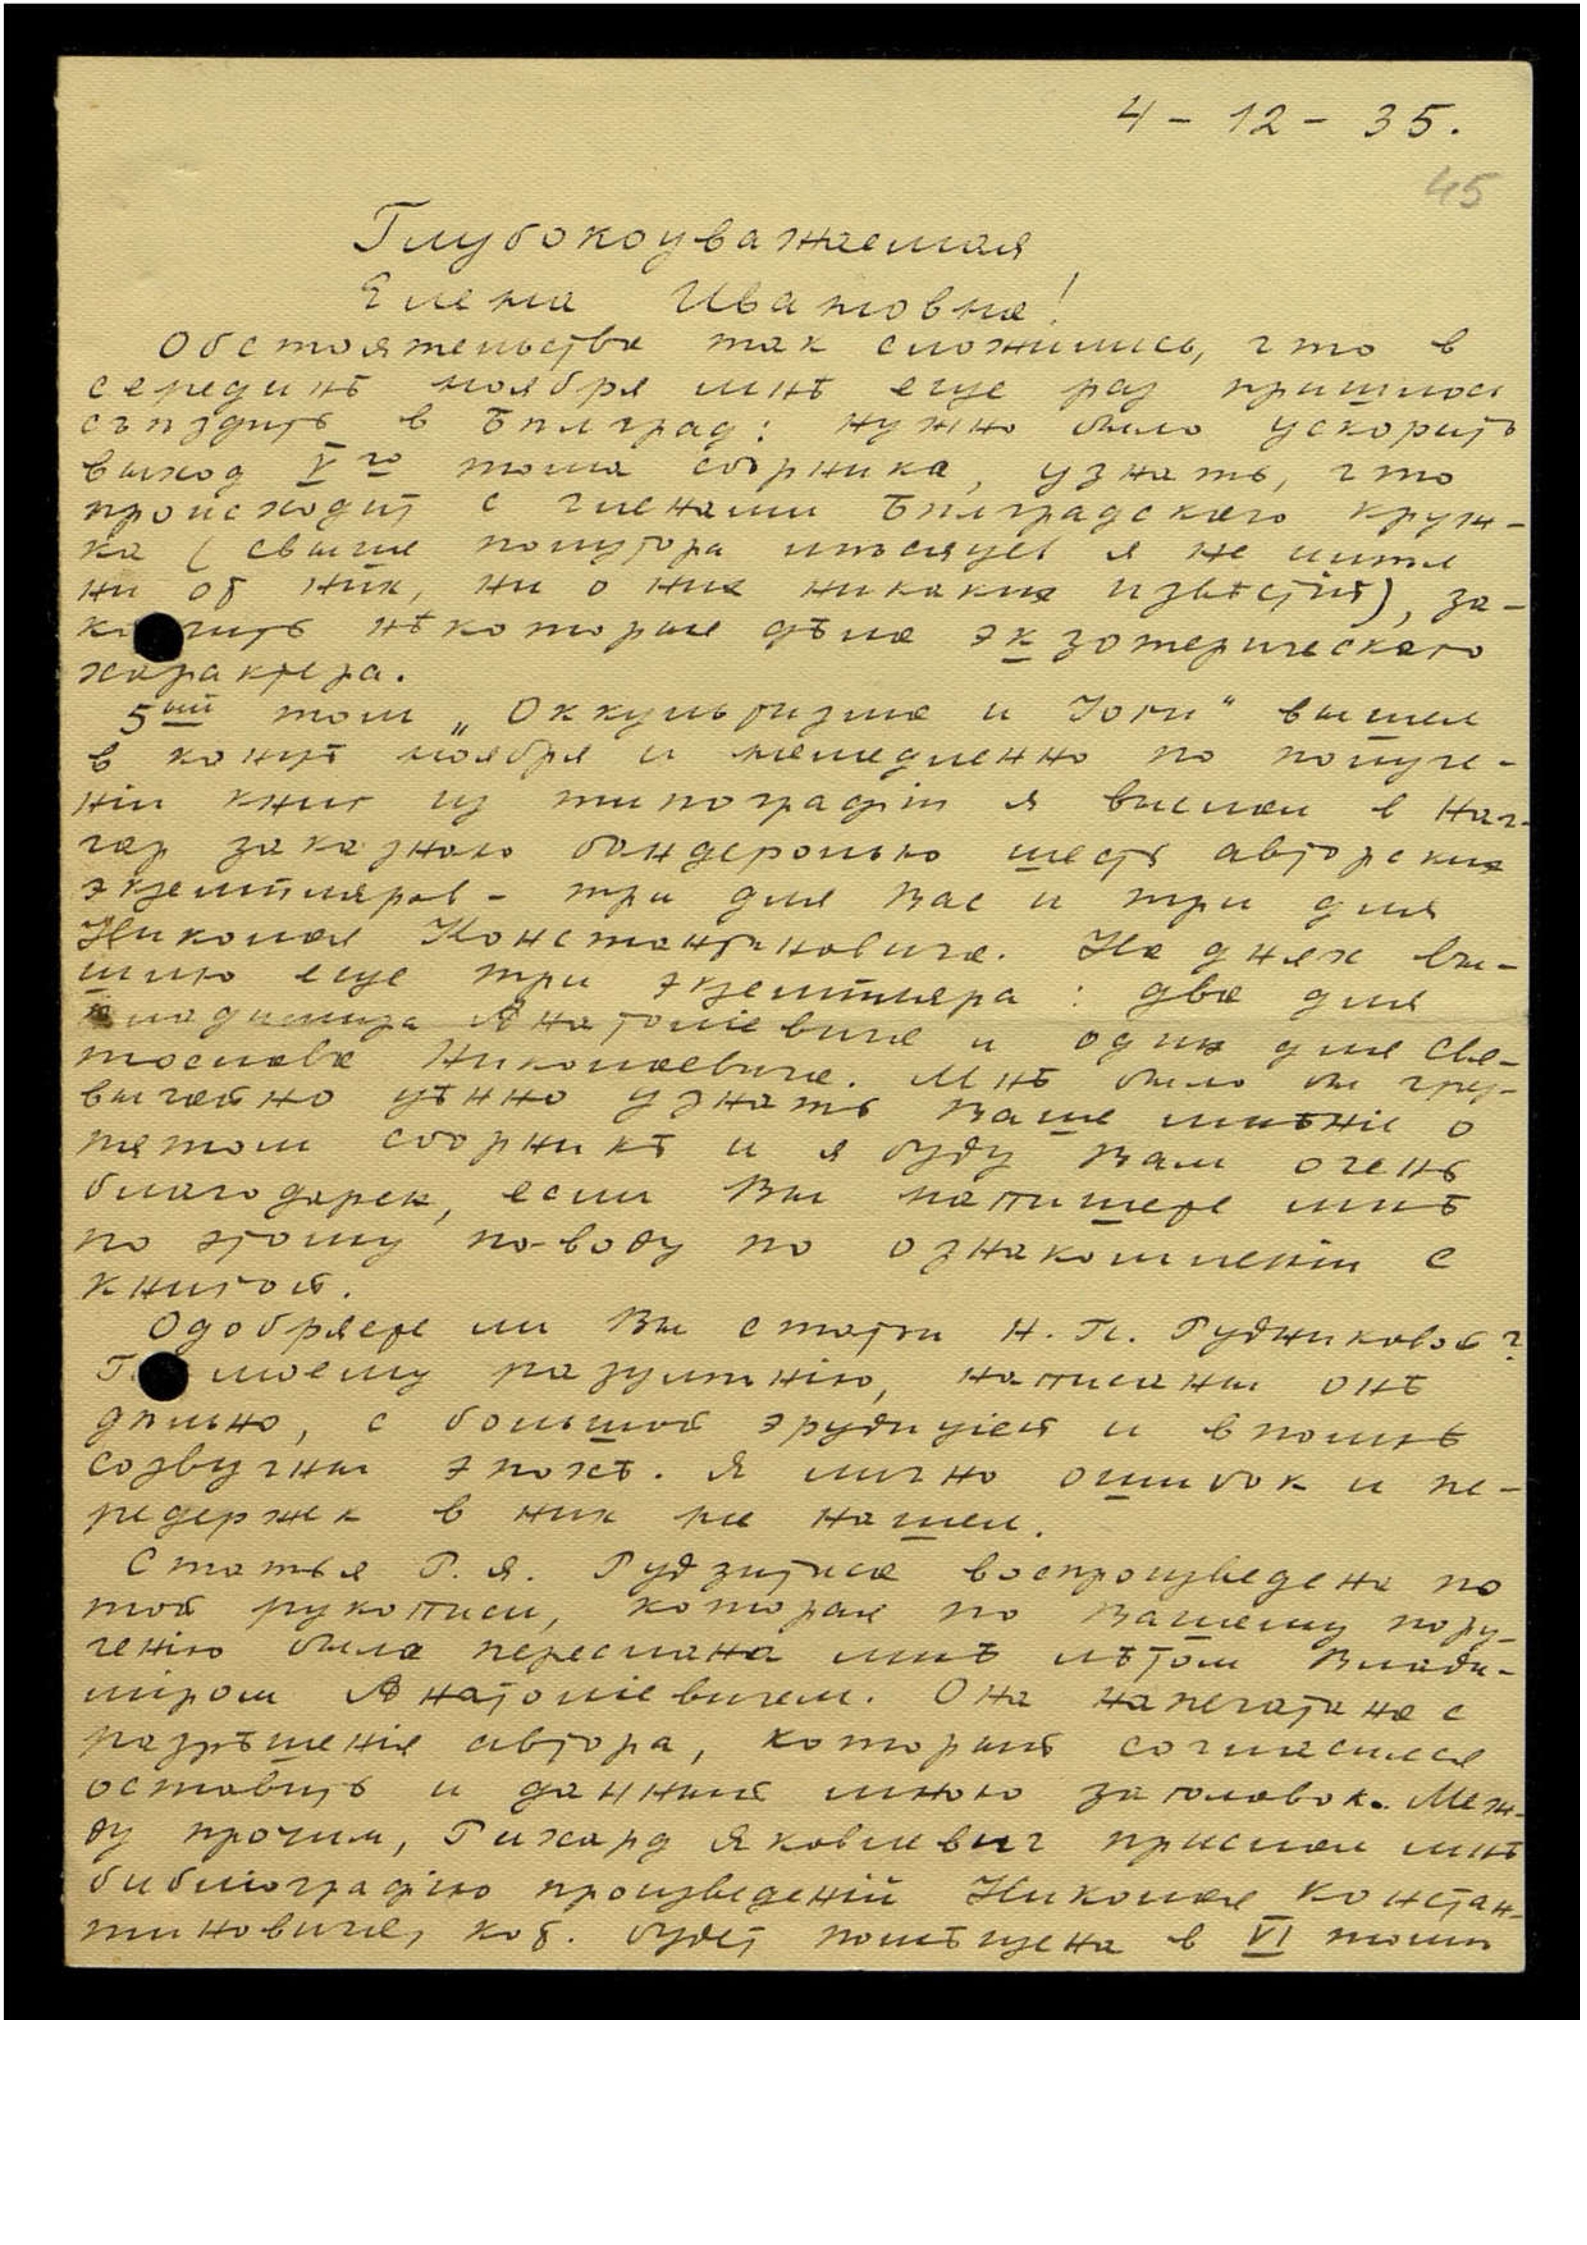 4 - 12 - 35.
45
Глубокоуважаемая
Елена Ивановна!
Обстоятельства так сложились, что в
серединѣ ноября мнѣ еще раз пришлось
съѣздить в Бѣлград: нужно было ускорить
выход V го тома сборника, узнать, что
происходит с членами Бѣлградского круж-
ка (свыше полутора мѣсяцев я не имѣл
ни от них, ни о них никаких извѣстій), за-
кончить нѣкоторые дѣла экзотерического
характера.
5ый том „Оккультизма и Іоги“ вышел
в концѣ ноября и немедленно по получе-
ніи книг из типографіи я выслал в Наг-
гар заказною бандеролью шесть авторских
экземпляров - три для Вас и три для
Николая Константиновича. На днях вы-
шлю еще три экземпляра: два для
Владимира Анатоліевича и один для Свя-
тослава Николаевича. Мнѣ было бы чрез-
вычайно цѣнно узнать Ваше мнѣніе о
пятом сборникѣ и я буду Вам очень
благодарен, если Вы напишете мнѣ
по этому по-воду по ознакомленіи с
книгой.
Одобряете ли Вы статьи Н. П. Рудниковой?
По моему разумѣнію, написаны онѣ
дѣльно, с большой эрудиціей и вполнѣ
созвучны эпохѣ. Я лично ошибок и пе-
редержек в них не нашел.
Статья Р. Я. Рудзитиса воспроизведена по
той рукописи, которая по Вашему пору-
ченію была переслана мнѣ лѣтом Влади-
міром Анатоліевичем. Она напечатана с
разрѣшенія автора, который согласился
оставить и данный мною заголовок. Меж-
ду прочим, Рихард Яковлевич прислал мнѣ
библіографію произведеній Николая Констан-
тиновича, коя. будет помѣщена в VI томѣ